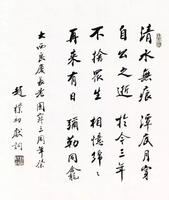 清水無痕 潭底月穿
自公之逝 於今三年
不捨眾生 相憶綿綿
再來有日 彌勒同龕
大西良慶長老圓寂三周年祭
趙樸初獻詞